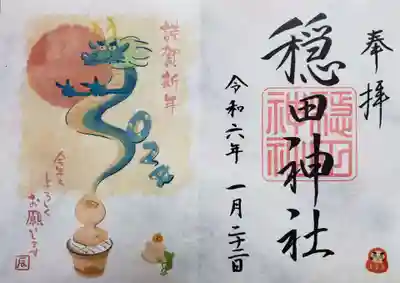 奉拝
穏田神社
穏田
神社
令和六年 一月二十二日
謹賀新年
2024
今年も
よろしく
お願いします
辰